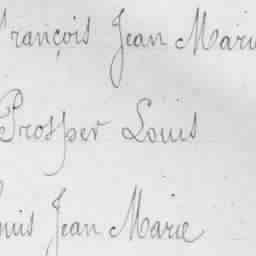 François Jean Marie
Prosper Louis
Louis Jean Marie